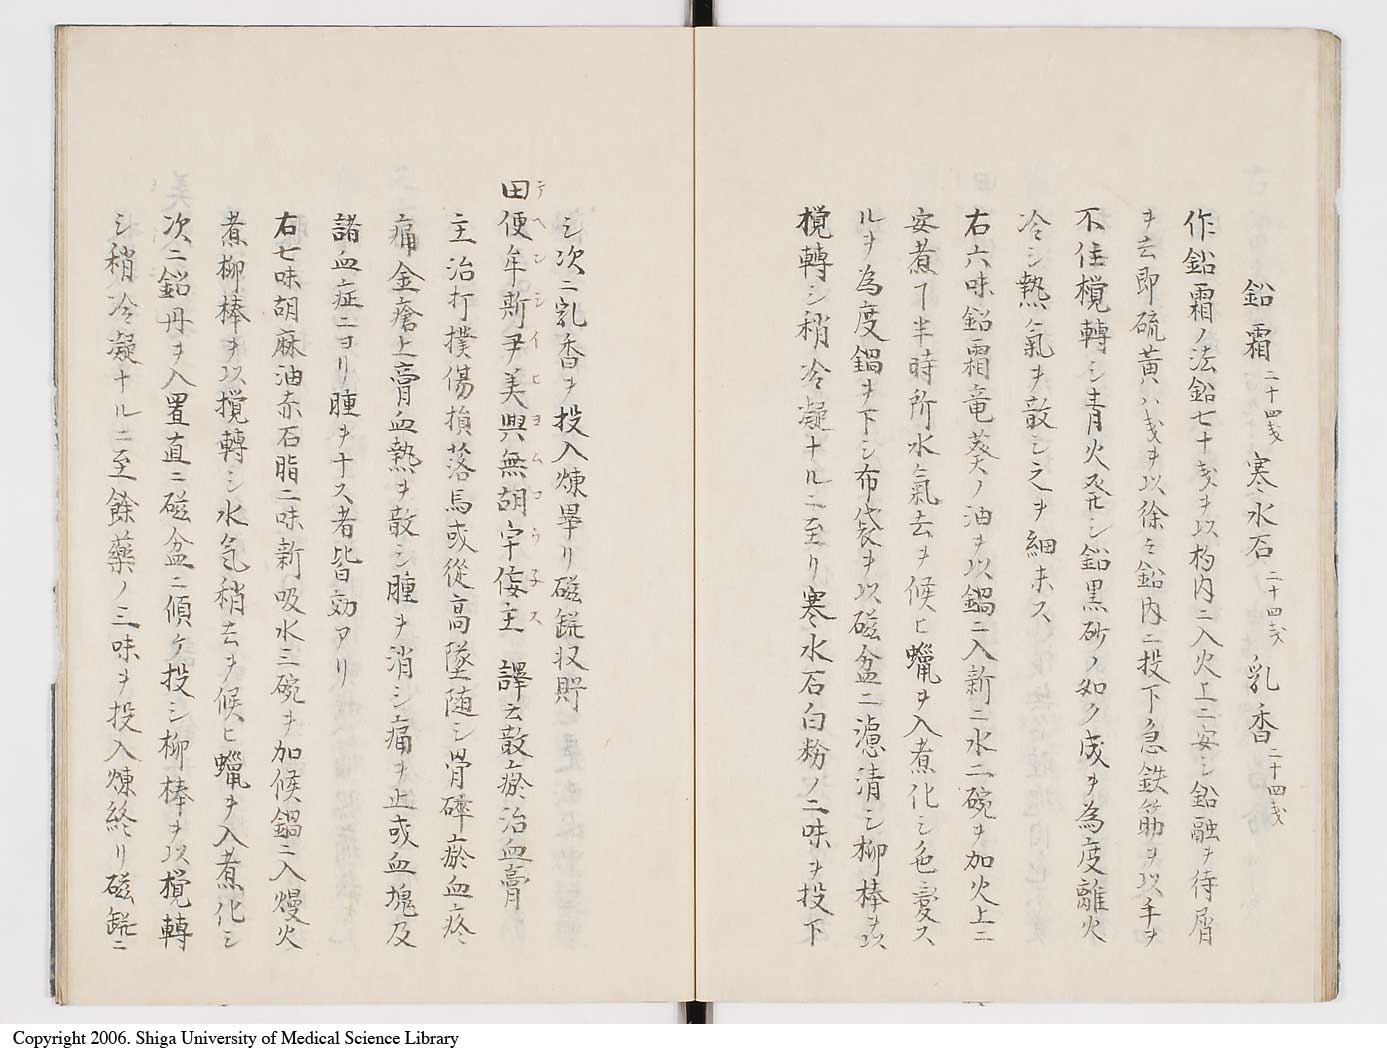 鉛霜二十四戔 寒水石二十四戔 乳香二十四戔
作鉛霜ノ法鉛七十戔ヲ以杓内ニ入火上ニ安シ鉛融ヲ待屑
ヲ去即硫黄八戔ヲ以徐々鉛内ニ投下急鉄筋ヲ以手ヲ
不住攪轉シ青火発シ鉛黒砂ノ如ク成ヲ為度離火
冷シ熱氣ヲ散シ之ヲ細末ス
右六味鉛霜竜葵ノ油ヲ以鍋ニ入新ニ水二碗ヲ加火上ニ
安煮ヿ半時所水氣去ヲ候ヒ蠟ヲ入煮化シ色変ス
ルヲ為度鍋ヲ下シ布袋ヲ以磁盆ニ濾清シ柳棒ヲ以
攪轉シ稍冷凝ナルニ至リ寒水石白粉ノ二味ヲ投下
シ次ニ乳香ヲ投入煉畢リ磁鋺収貯
田便牟斯尹美與無胡宇倭主 譯云散瘀治血膏
テヘンシイヒヨムコウ子ス
主治打撲傷損落馬或從高墜随シ骨碎瘀血疼
痛金瘡上膏血熱ヲ散シ腫ヲ消シ痛ヲ止或血塊及
諸血症ニヨリ腫ヲナス者皆効アリ
右七味胡麻油赤石脂二味新吸水三碗ヲ加候鍋ニ入熳火
煮柳棒ヲ以攪轉シ水気稍去ヲ候ヒ蠟ヲ入煮化シ
次ニ鉛丹ヲ入置直ニ磁盆ニ傾ケ投シ柳棒ヲ以攪轉
シ稍冷凝ナルニ至餘藥ノ三味ヲ投入煉終リ磁鋺ニ
Copyright 2006. Shiga University of Medical Science Library